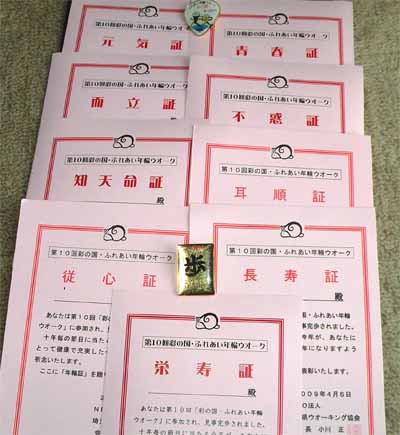 第10回彩の国・ふれあい年輪ウオーク
元気証
第10回彩の国・ふれあい年輪ウオーク
青春証
第10回彩の国・ふれあい年輪ウオーク
而立証
第10回彩の国・ふれあい年輪ウオーク
不惑証
第10回彩の国・ふれあい年輪ウオーク
知天命証
殿
第10回彩の国・ふれあい年輪ウオーク
耳順証
第10回彩の国・ふれあい年輪ウオーク
従心証
あなたは第10回「彩の
ウオーク」に参加され、見
十年毎の節目に当た
とって健康で充実した
祈念いたします。
ここに「年輪証」を贈り
歩
第10回彩の国・ふれあい年輪ウオーク
長寿証
殿
・ふれあい年輪
事完歩されました。
今年が、あなた
年になりますよう
表彰いたします。
009年4月5日
O法人
県ウオーキング協会
長 小川 正
第10回彩の国・ふれあい年輪ウオーク
栄寿証
殿
あなたは第10回「彩の国・ふれあい年輪
ウオーク」に参加され、見事完歩されました。
十年毎の節目に当たる今年が、あなた